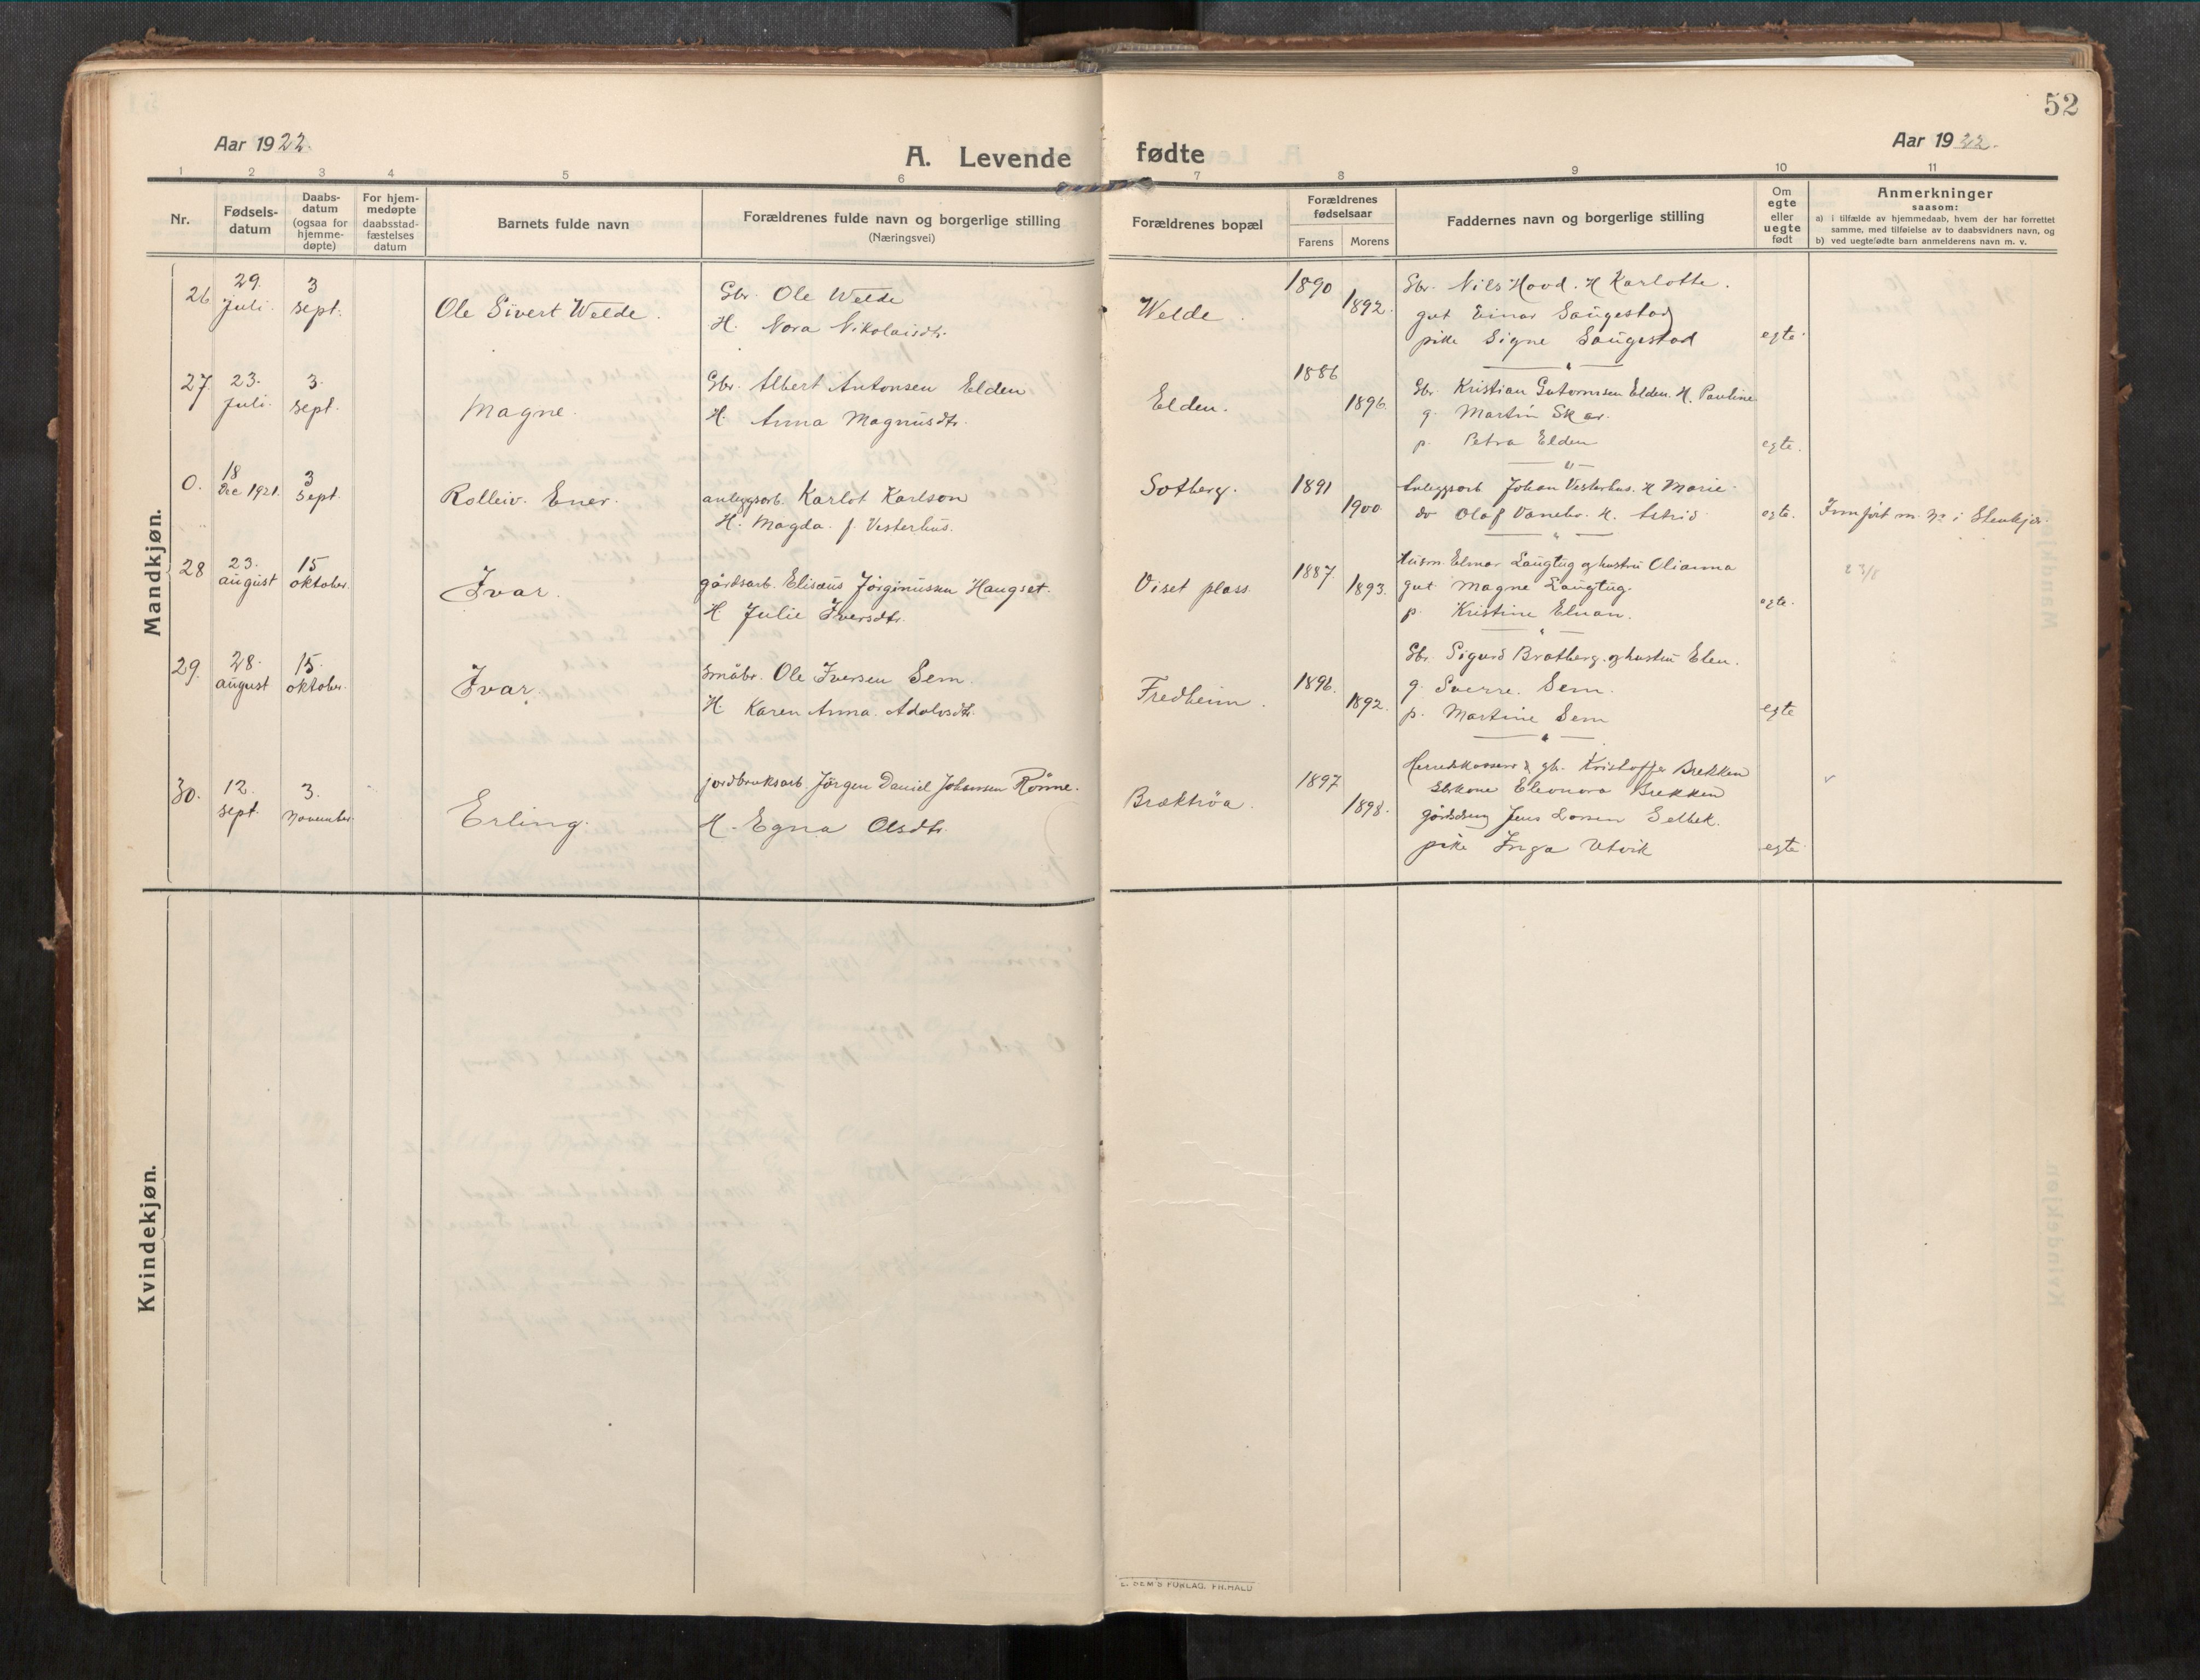 52
Aar 1922.
A. Levende fødte
Aar 1922.
1 2 3 4 5 6 7 8 9 10 11
Nr.
Fødsels-
datum
Daabs-
datum
(ogsaa for
hjemme-
døpte)
For hjem-
medøpte
daabsstad-
fæstelses
datum
Barnets fulde navn
Forældrenes fulde navn og borgerlige stilling
(Næringsvei)
Forældrenes bopæl
Forældrenes
fødselsaar
Farens Morens
Faddernes navn og borgerlige stilling
Om
egte
eller
uegte
født
Anmerkninger
saasom:
a) i tilfælde av hjemmedaab, hvem der har forrettet
samme, med tilføielse av to daabsvidners navn, og
b) ved uegtefødte barn anmelderens navn m. v.
Mandkjøn.
26
29.
juli.
3
sept.
Ole Sivert Welde.
Gbr. Ole Welde
H. Nora Nikolaisdtr.
Welde.
1890
1892.
Gbr. Nils Hovd. H Karlotte.
gut Einar Saugestad
pike Signe Saugestad
egte.
27.
23.
juli.
3.
sept.
Magne.
Gbr. Albert Antonsen Elden
H. Anna Magnusdtr.
Elden.
1886
1896.
Gbr. Kristian Gutormsen Elden. H. Pauline
g. Martin Skar.
p. Petra Elden
egte.
0.
18
Dec 1921.
3
sept.
Rolleiv. Ener.
anleggsarb. Karlot Karlson
H. Magda. f. Vesterhus.
Sotberg.
1891
1900.
Anleggsarb Johan Vesterhus. H Marie.
do Olaf H. Astrid
egte.
Innført m. i Stenkjær.
28
23.
august
15
oktober.
Ivar.
gårdsarb. Elisæus Jørginussen Haugset.
H Julie Iversdtr.
Viset plass
1887.
1893.
Husm. Elmar Laugtug og hustru Olianna
gut Magne Laugtug.
p. Kristine Elnan.
egte.
29.
28.
august
15.
oktober.
Ivar.
Småbr. Ole Iversen Sem.
H. Karen Anna. Adolvsdtr.
Fredheim.
1896.
1892.
Gbr. Sigurd Bratberg. og hustru Elen.
g. Sverre. Sem.
p. Martine Sem
egte
30.
12.
sept.
3.
November.
Erling.
jordbruksarb. Jørgen Daniel Johansen Rønne.
H. Egna Olsdtr.
Bræktrøa.
1897
1898.
Herredskasserer & gb. Kristoffer Brekken
Gbrkone Eleonora Brekken
gårdsdreng Jens Larsen Selbek.
pike Inga Utvik
egte
Kvindekjøn.
E. SEM'S FORLAG, FR.HALD